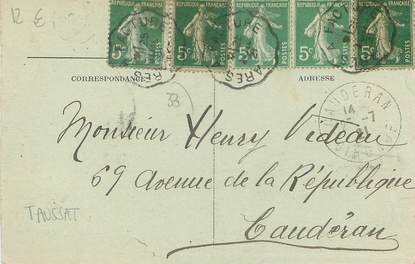 12 €
REPUBLIQUE FRANÇAISE REPUBLIQUE FRANÇAISE REPUBLIQUE FRANÇAISE REPUBLIQUE FRANÇAISE REPUBLIQUE FRANÇAISE
5c POSTES 5c POSTES 5c POSTES 5c POSTES 5c POSTES
CORRESPONDANCE ADRESSE
33
CAUDERAN
14 -7
Monsieur Henry Videau
69 Avenue de la République
TAUSSAT
Caudéran